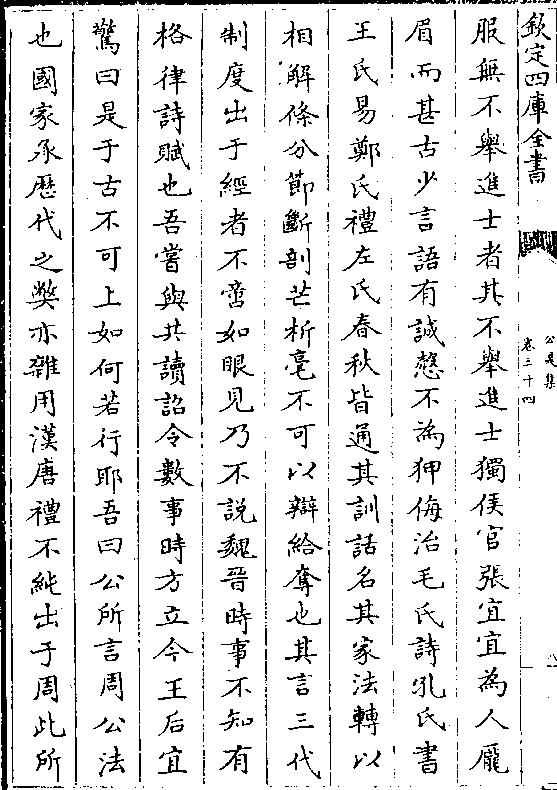 欽定四庫全書
公是集
卷三十四
服無不舉進士者其不舉進士獨侯官張宜宜為人厖
眉而甚古少言語有誠慤不為狎侮治毛氏詩孔氏書
王氏易鄭氏禮左氏春秋皆通其訓詁名其家法轉以
相解條分節斷剖芒析毫不可以辯給奪也其言三代
制度出于經者不啻如眼見乃不說魏晉時事不知有
格律詩賦也吾嘗與共讀詔令數事時方立今王后宜
驚曰是于古不可上如何若行耶吾曰公所言周公法
也國家承歷代之獘亦雜用漢唐禮不純出于周此所